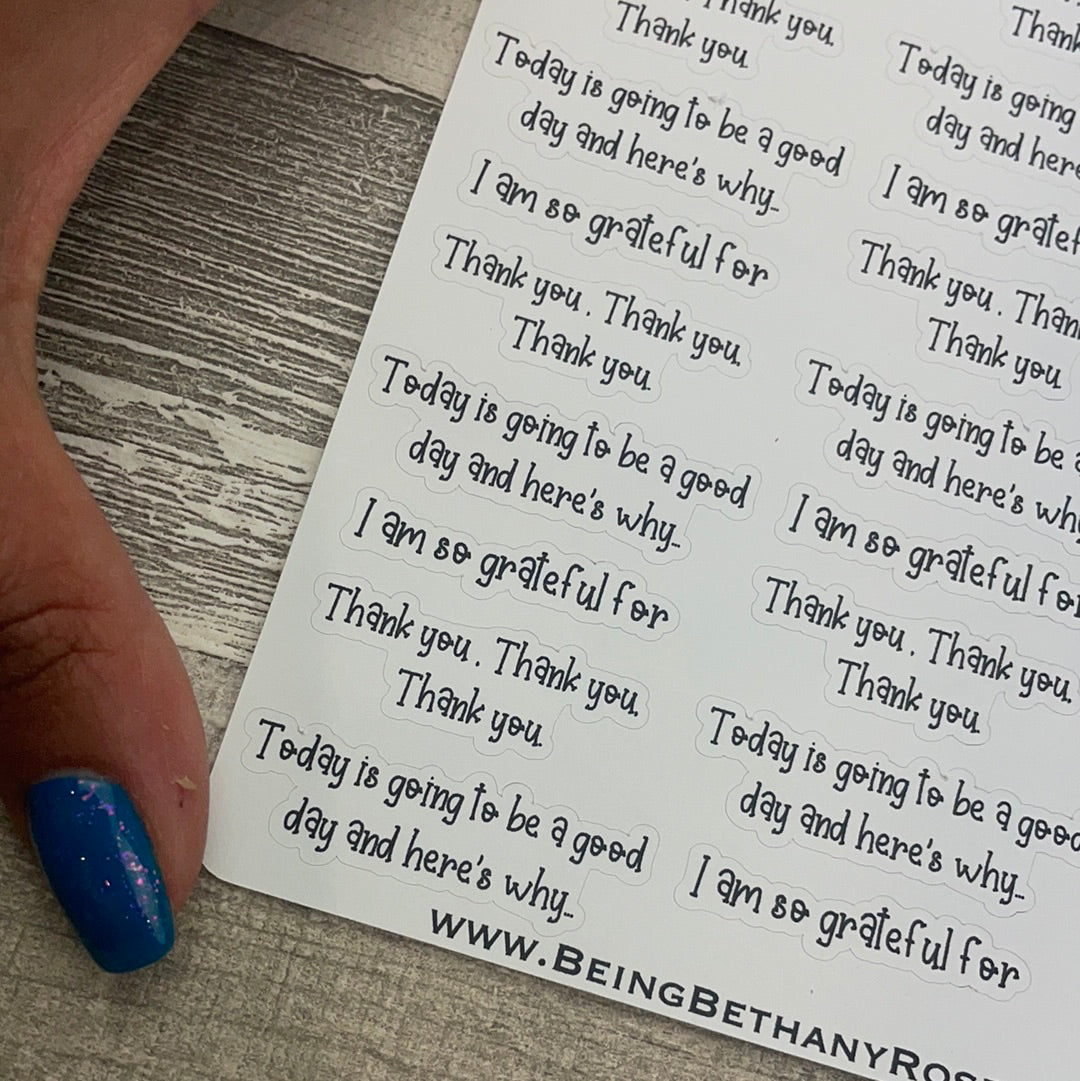 Thank you.
Thank you.
Today is going to be a good
day and here's why..
I am so grateful for
Thank you. Thank you.
Thank you.
Today is going to be a good
day and here's why..
I am so grateful for
Thank you. Thank you.
Thank you.
Today is going to be a good
day and here's why..
Today is going
day and
I am so
Thank you.
Thank you.
Today is going to be
day and here's
I am so grateful
Thank you. Thank you.
Thank you.
Today is going to be a good
day and here's why..
I am so grateful for
www.BeingBethanyRos